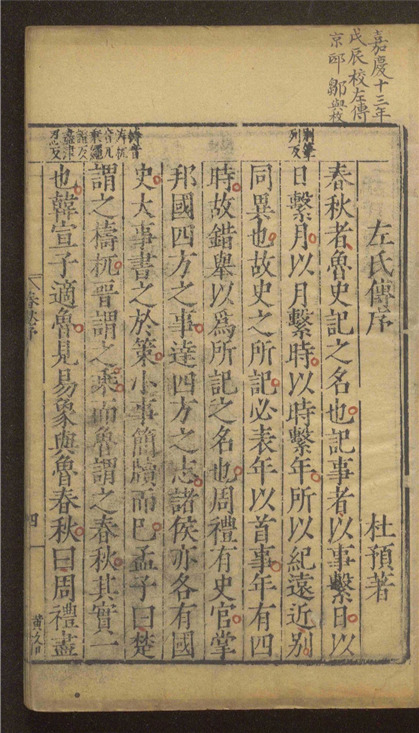 嘉慶十三年
戊辰校左傳
京邸鄒
左氏傳序
杜預著
春秋者魯史記之名也記事者以事繫日以
日繫月以月繫時以時繫年所以紀遠近别
同異也故史之所記必表年以首事年有四
時故錯舉以爲所記之名也周禮有史官掌
邦國四方之事達四方之志諸侯亦各有國
史大事書之於策小事簡牘而已孟子曰楚
謂之檮杌晋謂之乘而魯謂之春秋其實一
也韓宣子適魯見易象與魯春秋曰周禮盡
春秋序
四